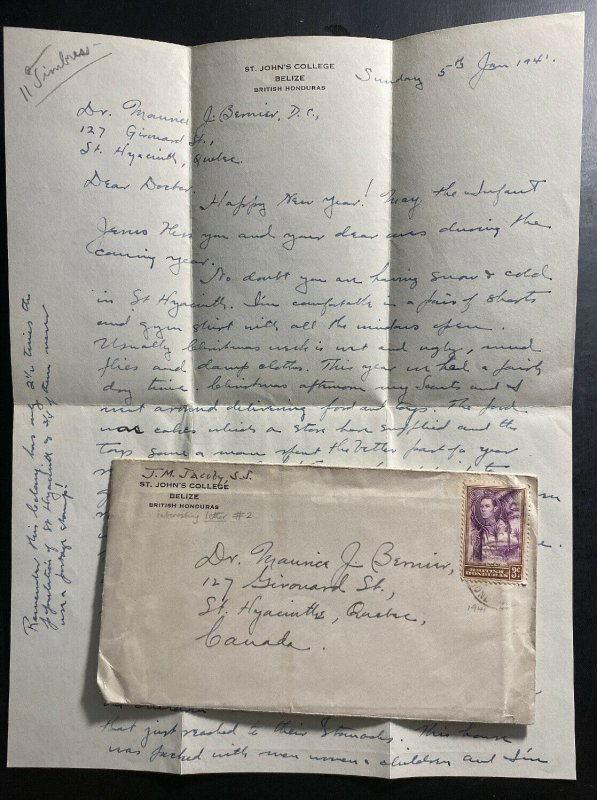 11 Timbres
ST. JOHN'S COLLEGE
BELIZE
BRITISH HONDURAS
Sunday 5th Jan 1941.
Dr. Maurice J. Bernier, D.C.,
127 Girouard St.,
St. Hyacinth, Quebec.
Dear Doctor,
Happy New Year! May the Infant
Jesus bless you and your dear ones during the
coming year.
No doubt you are having snow & cold
in St Hyacinth. I'm comfortable in a pair of shorts
and gym shirt with all the windows open.
Usually Christmas week is wet and ugly, mud
flies and damp clothes. This year we had a fairly
dry time. Christmas afternoon my Scouts and I
went around delivering food and toys. The food
was cakes which a store have supplied and the
toys some a man spent the better part of a year
Remember this colony has only 2½ times the
population of St Hyacinth &
use a postage stamp!
J. M. Jacoby, S.J.
ST. JOHN'S COLLEGE
BELIZE
BRITISH HONDURAS
interesting letter #2
Dr. Maurice J. Bernier,
127 Girouard St.,
St. Hyacinthe, Quebec,
Canada.
BRITISH
HONDURAS
3c
1941
that just reached to their stomachs. This house
was packed with men women & children and I'm